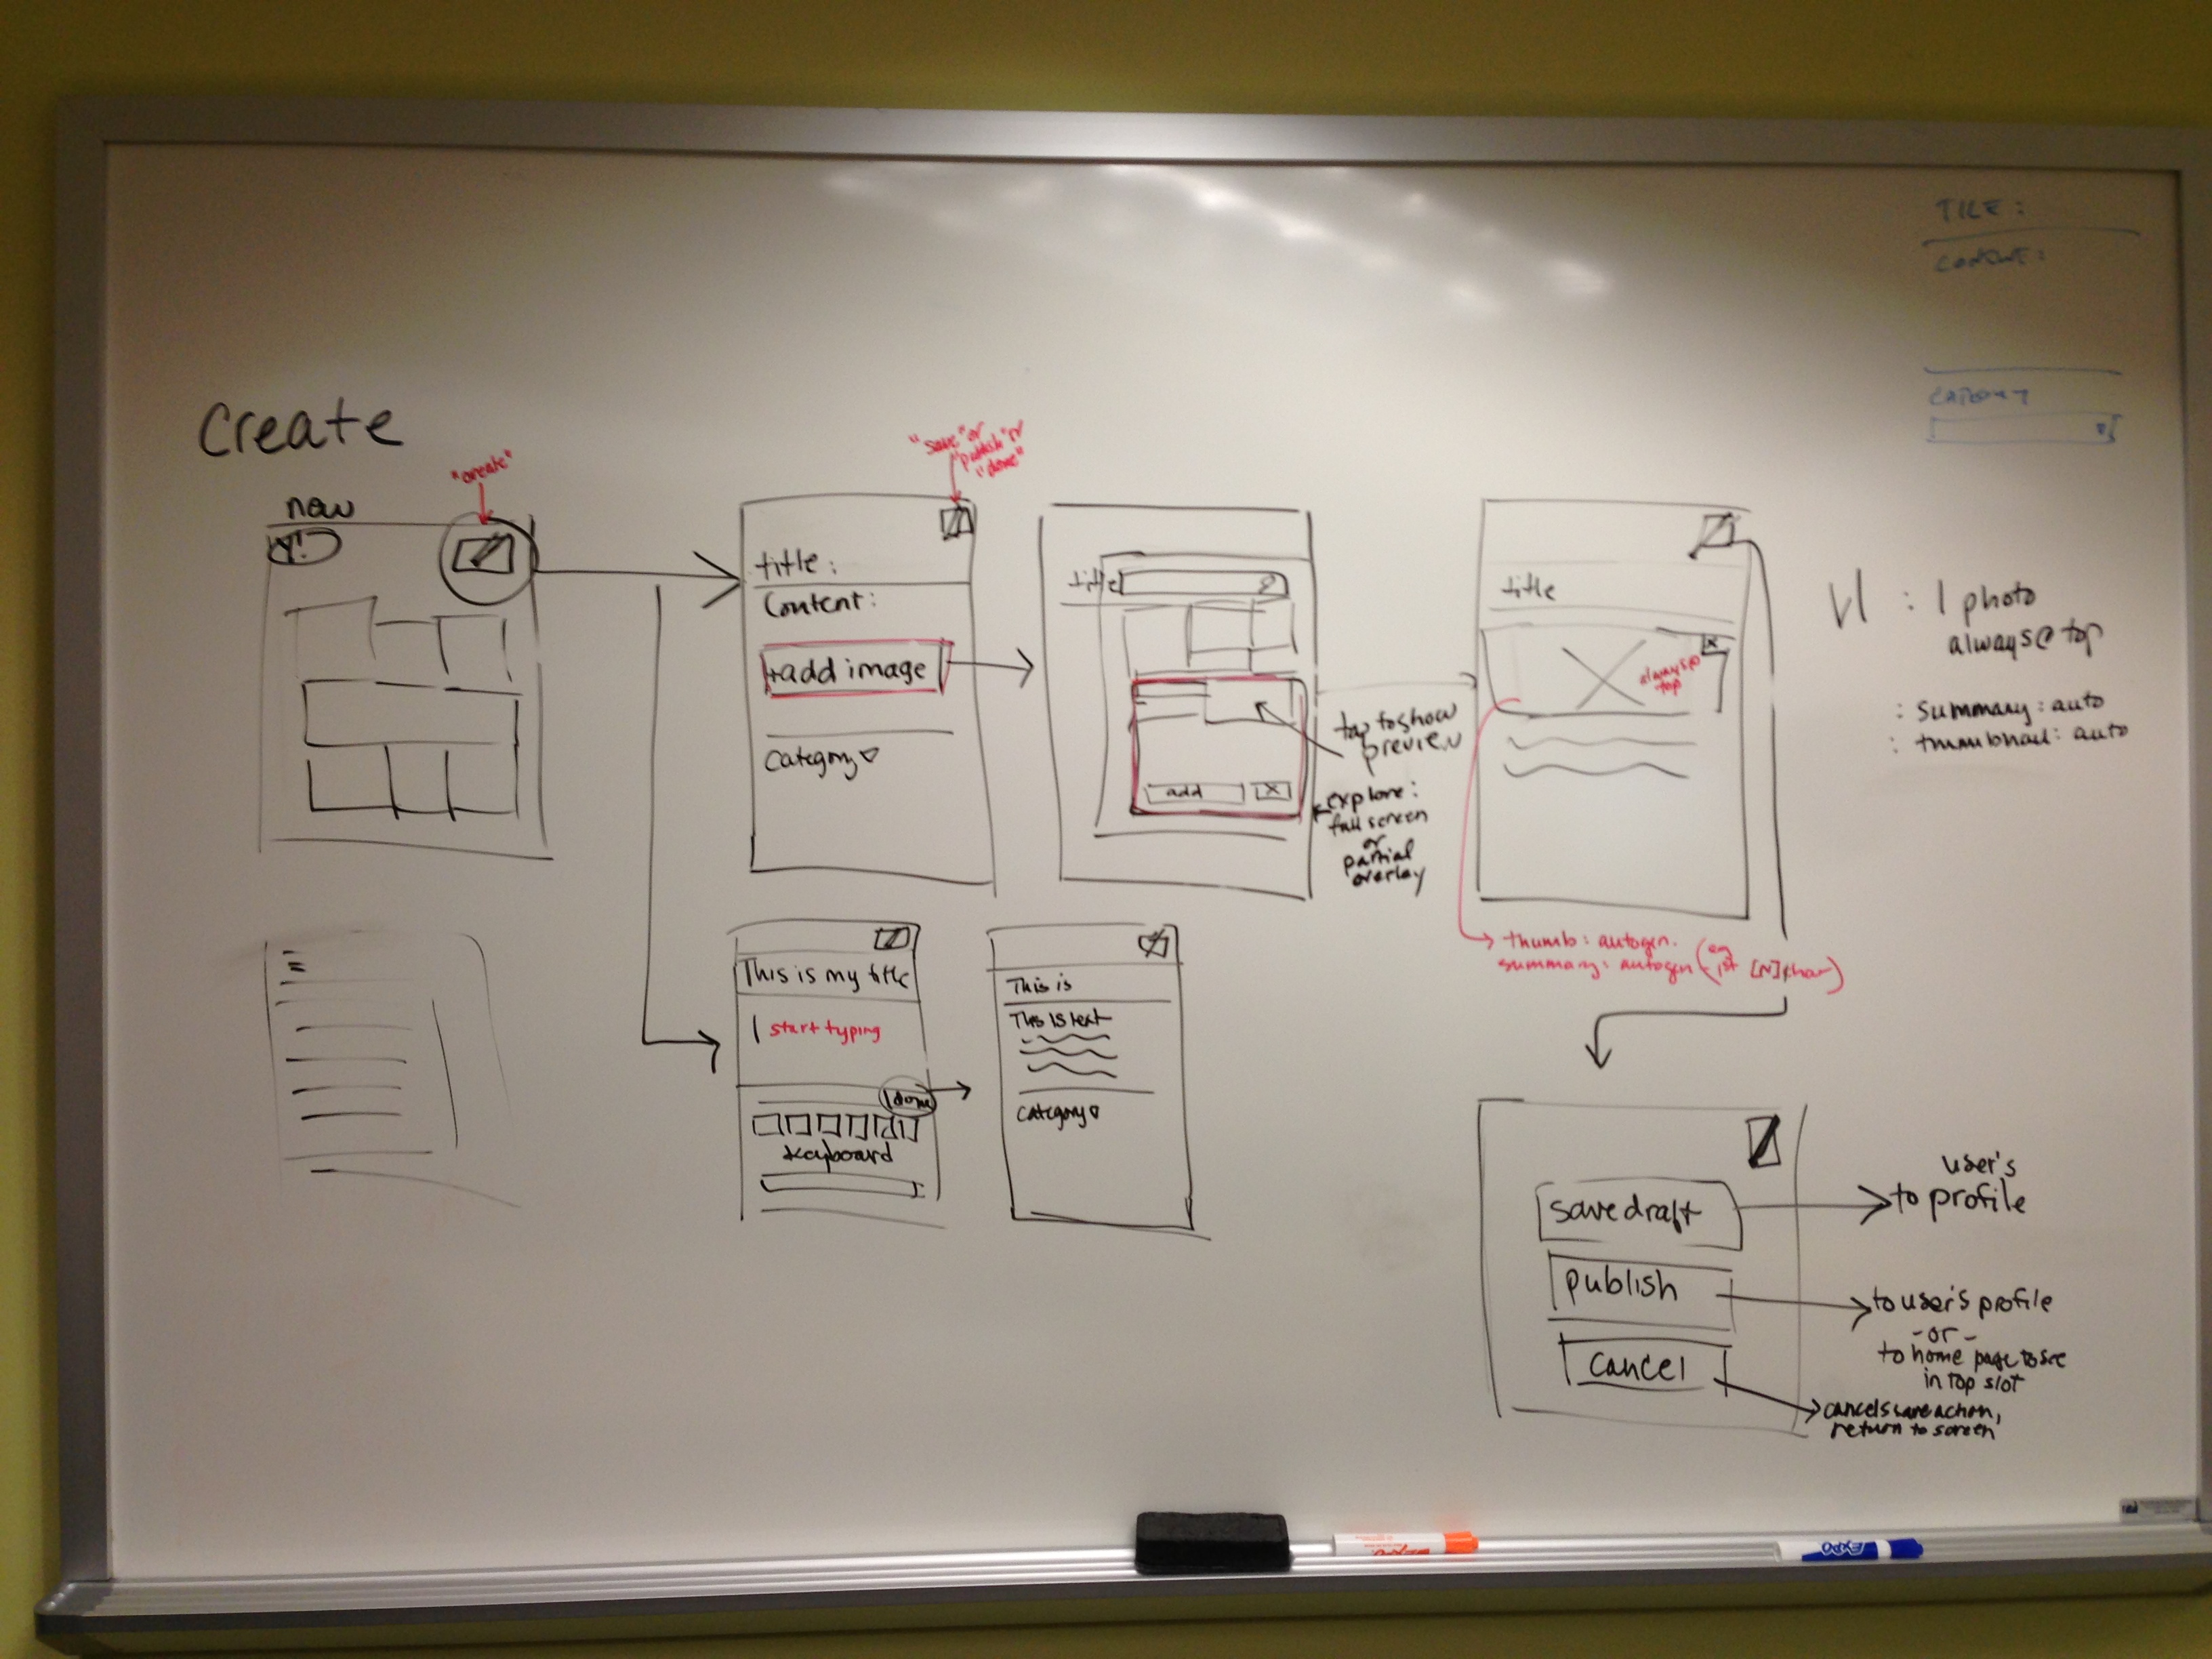 create
"create"
new
"save" or
"publish" or
"done"
title:
Content:
+add image
Category
title
add
tap to show
preview
explore:
full screen
or
partial
overlay
title
always@
top
thumb: autogen.
summary: autogen (eg
1st [N] char)
V1 : 1 photo
always@top
: summary: auto
: thumbnail: auto
TITLE:
This is my title
start typing
done
keyboard
This is
This is text
Category
save draft
user's
to profile
publish
to user's profile
-or-
to home page to see
in top slot
cancel
cancels save action,
return to screen
EXPO